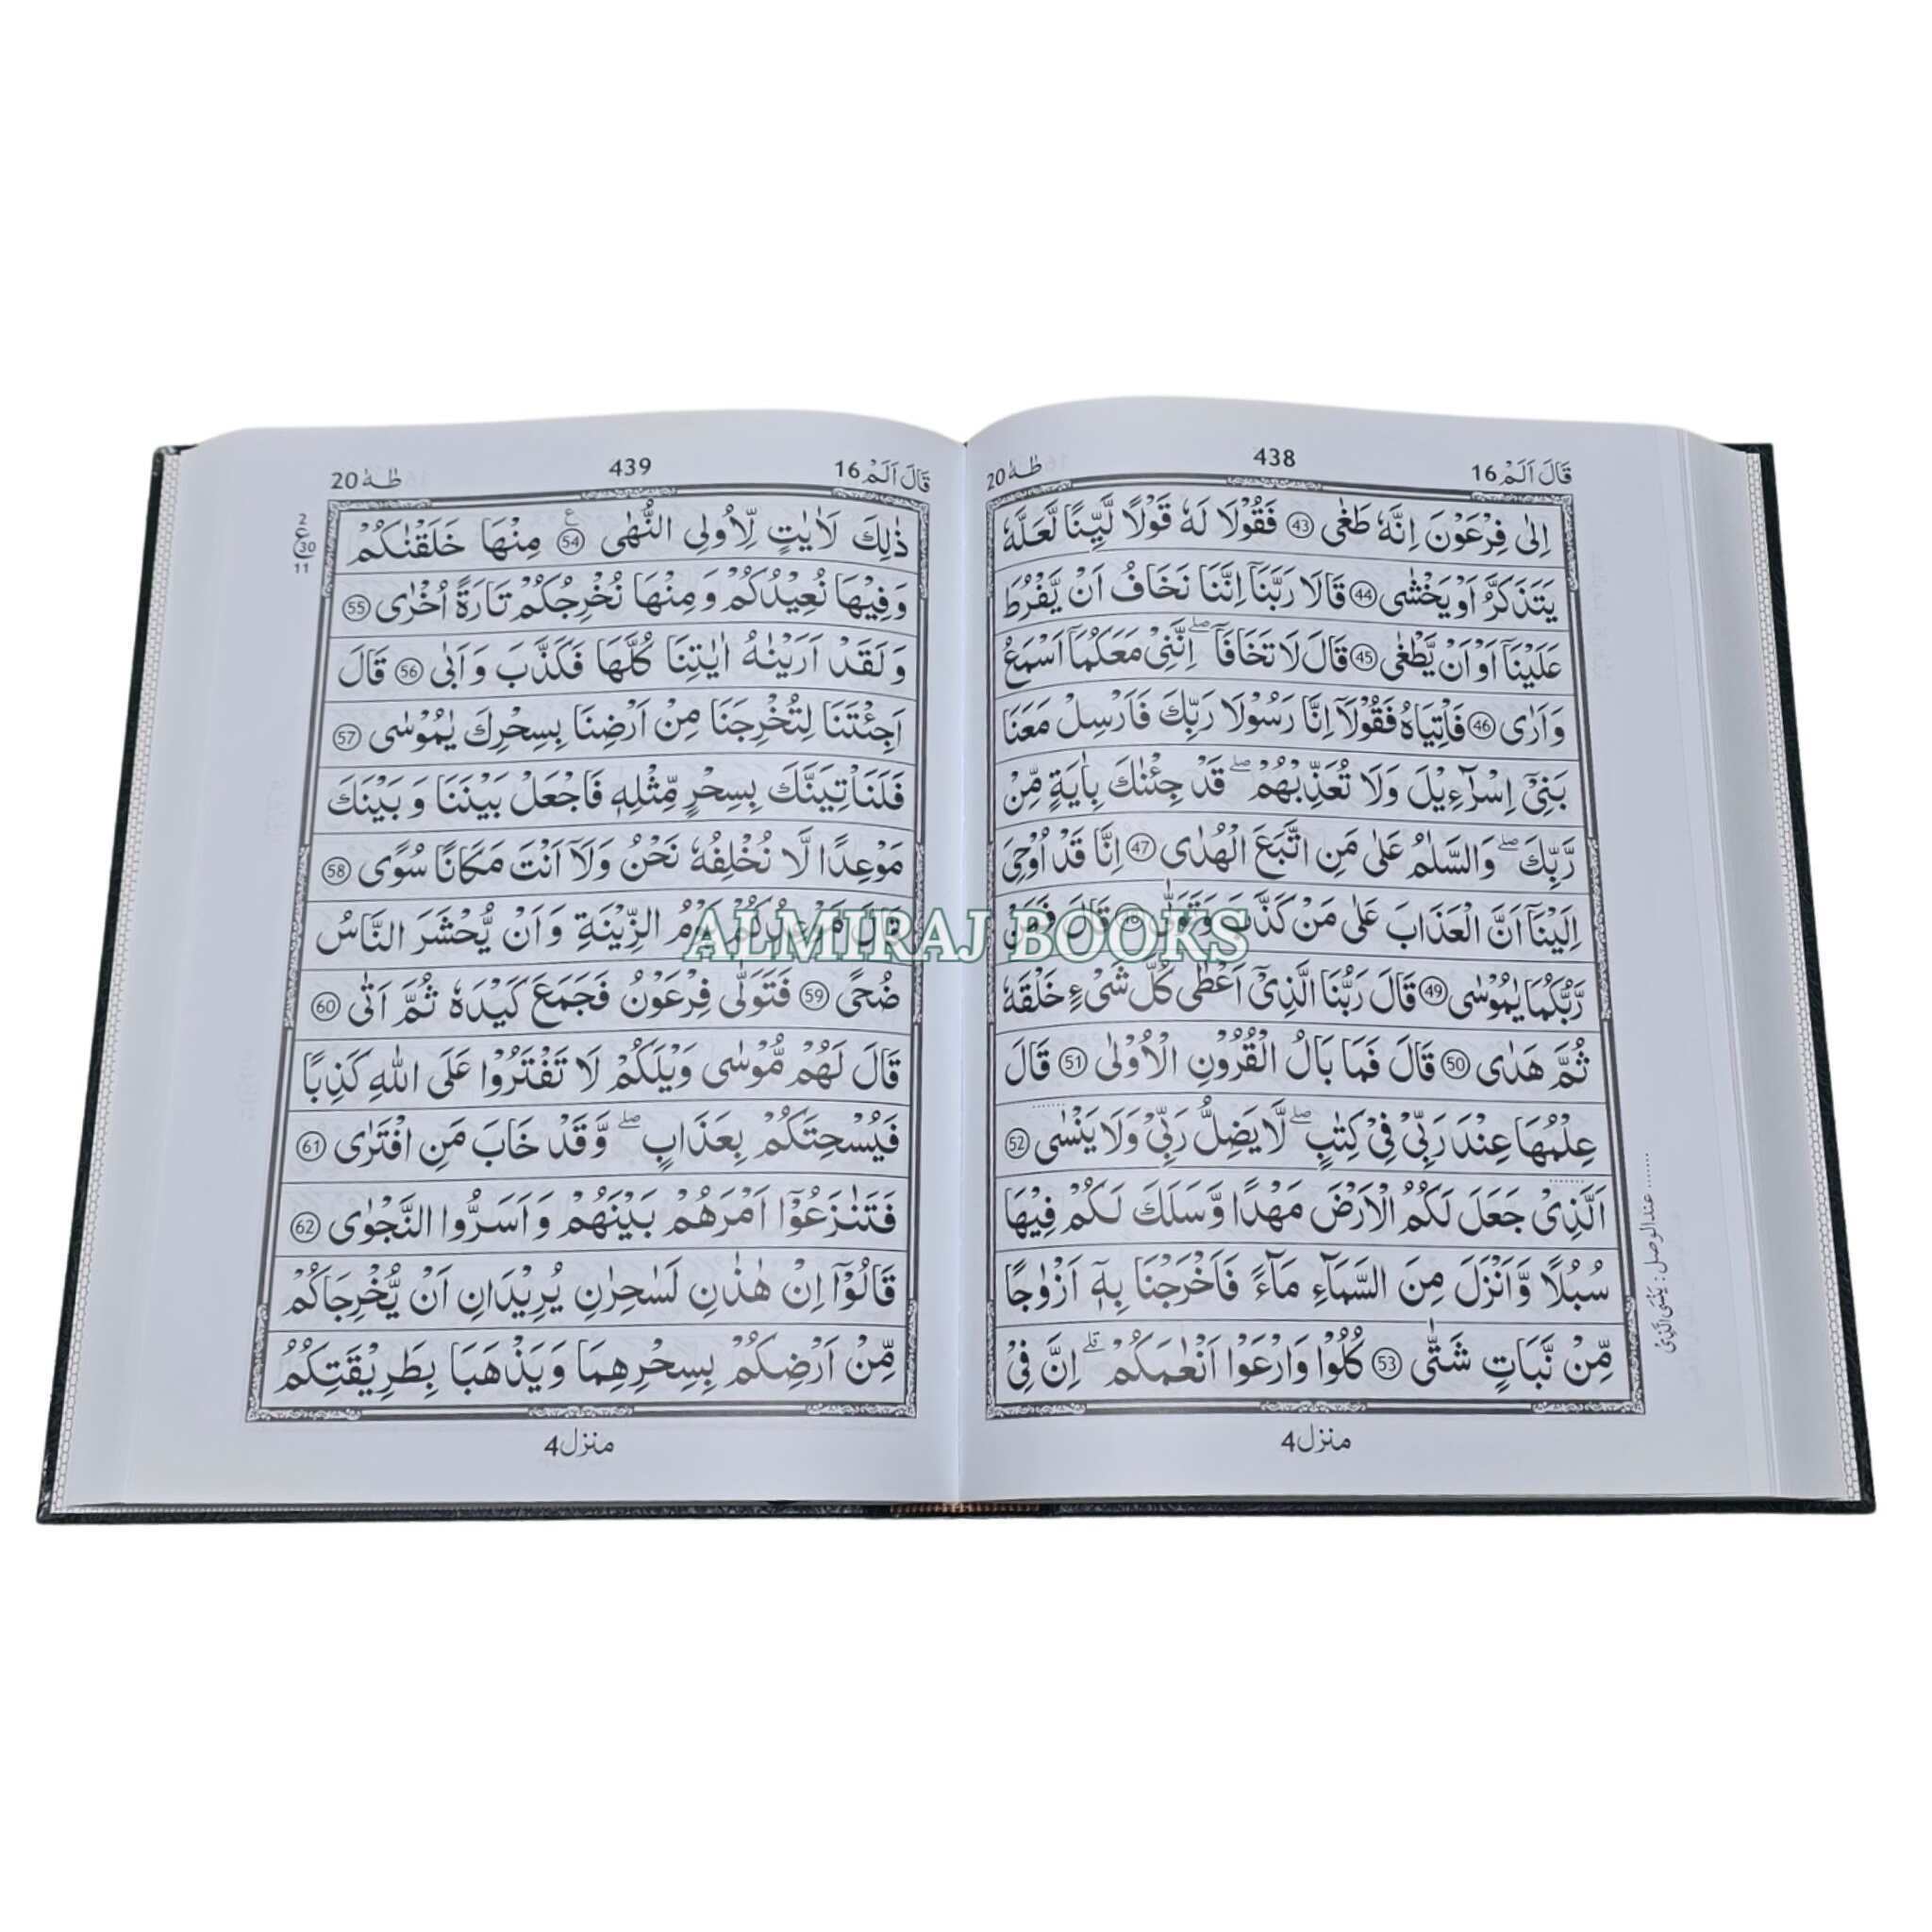 قَالَ اَلَمْ 16
438
طٰهٰ 20
اِلٰى فِرْعَوْنَ اِنَّهٗ طَغٰى ﴿43﴾ فَقُوْلَا لَهٗ قَوْلًا لَّيِّنًا لَّعَلَّهٗ
يَتَذَكَّرُ اَوْ يَخْشٰى ﴿44﴾ قَالَا رَبَّنَآ اِنَّنَا نَخَافُ اَنْ يَّفْرُطَ
عَلَيْنَآ اَوْ اَنْ يَّطْغٰى ﴿45﴾ قَالَ لَا تَخَافَآ ۖ اِنَّنِيْ مَعَكُمَآ اَسْمَعُ
وَ اَرٰى ﴿46﴾ فَاْتِيَاهُ فَقُوْلَآ اِنَّا رَسُوْلَا رَبِّكَ فَاَرْسِلْ مَعَنَا
بَنِيْٓ اِسْرَآءِيْلَ وَلَا تُعَذِّبْهُمْ ۖ قَدْ جِئْنٰكَ بِاٰيَةٍ مِّنْ
رَّبِّكَ ۖ وَالسَّلٰمُ عَلٰى مَنِ اتَّبَعَ الْهُدٰى ﴿47﴾ اِنَّا قَدْ اُوْحِيَ
اِلَيْنَآ اَنَّ الْعَذَابَ عَلٰى مَنْ كَذَّبَ وَتَوَلّٰى ﴿48﴾ قَالَ فَمَنْ
رَّبُّكُمَا يٰمُوْسٰى ﴿49﴾ قَالَ رَبُّنَا الَّذِيْٓ اَعْطٰى كُلَّ شَيْءٍ خَلْقَهٗ
ثُمَّ هَدٰى ﴿50﴾ قَالَ فَمَا بَالُ الْقُرُوْنِ الْاُوْلٰى ﴿51﴾ قَالَ
عِلْمُهَا عِنْدَ رَبِّيْ فِيْ كِتٰبٍ ۖ لَا يَضِلُّ رَبِّيْ وَلَا يَنْسٰى ﴿52﴾
الَّذِيْ جَعَلَ لَكُمُ الْاَرْضَ مَهْدًا وَّسَلَكَ لَكُمْ فِيْهَا
سُبُلًا وَّاَنْزَلَ مِنَ السَّمَآءِ مَآءً فَاَخْرَجْنَا بِهٖٓ اَزْوٰجًا
مِّنْ نَّبَاتٍ شَتّٰى ﴿53﴾ كُلُوْا وَارْعَوْا اَنْعٰمَكُمْ ۗ اِنَّ فِيْ
منزل 4
عند الوصل: يَنْسَى الَّذِيْ
قَالَ اَلَمْ 16
439
طٰهٰ 20
ذٰلِكَ لَاٰيٰتٍ لِّاُولِى النُّهٰى ﴿54﴾ مِنْهَا خَلَقْنٰكُمْ
وَفِيْهَا نُعِيْدُكُمْ وَمِنْهَا نُخْرِجُكُمْ تَارَةً اُخْرٰى ﴿55﴾
وَلَقَدْ اَرَيْنٰهُ اٰيٰتِنَا كُلَّهَا فَكَذَّبَ وَاَبٰى ﴿56﴾ قَالَ
اَجِئْتَنَا لِتُخْرِجَنَا مِنْ اَرْضِنَا بِسِحْرِكَ يٰمُوْسٰى ﴿57﴾
فَلَنَاْتِيَنَّكَ بِسِحْرٍ مِّثْلِهٖ فَاجْعَلْ بَيْنَنَا وَبَيْنَكَ
مَوْعِدًا لَّا نُخْلِفُهٗ نَحْنُ وَلَآ اَنْتَ مَكَانًا سُوًى ﴿58﴾
قَالَ مَوْعِدُكُمْ يَوْمُ الزِّيْنَةِ وَاَنْ يُّحْشَرَ النَّاسُ
ضُحًى ﴿59﴾ فَتَوَلّٰى فِرْعَوْنُ فَجَمَعَ كَيْدَهٗ ثُمَّ اَتٰى ﴿60﴾
قَالَ لَهُمْ مُّوْسٰى وَيْلَكُمْ لَا تَفْتَرُوْا عَلَى اللّٰهِ كَذِبًا
فَيُسْحِتَكُمْ بِعَذَابٍ ۖ وَّقَدْ خَابَ مَنِ افْتَرٰى ﴿61﴾
فَتَنٰزَعُوْٓا اَمْرَهُمْ بَيْنَهُمْ وَاَسَرُّوا النَّجْوٰى ﴿62﴾
قَالُوْٓا اِنْ هٰذٰنِ لَسٰحِرٰنِ يُرِيْدَانِ اَنْ يُّخْرِجَاكُمْ
مِّنْ اَرْضِكُمْ بِسِحْرِهِمَا وَيَذْهَبَا بِطَرِيْقَتِكُمُ
منزل 4
2
ع
30
11
ALMIRAJ BOOKS